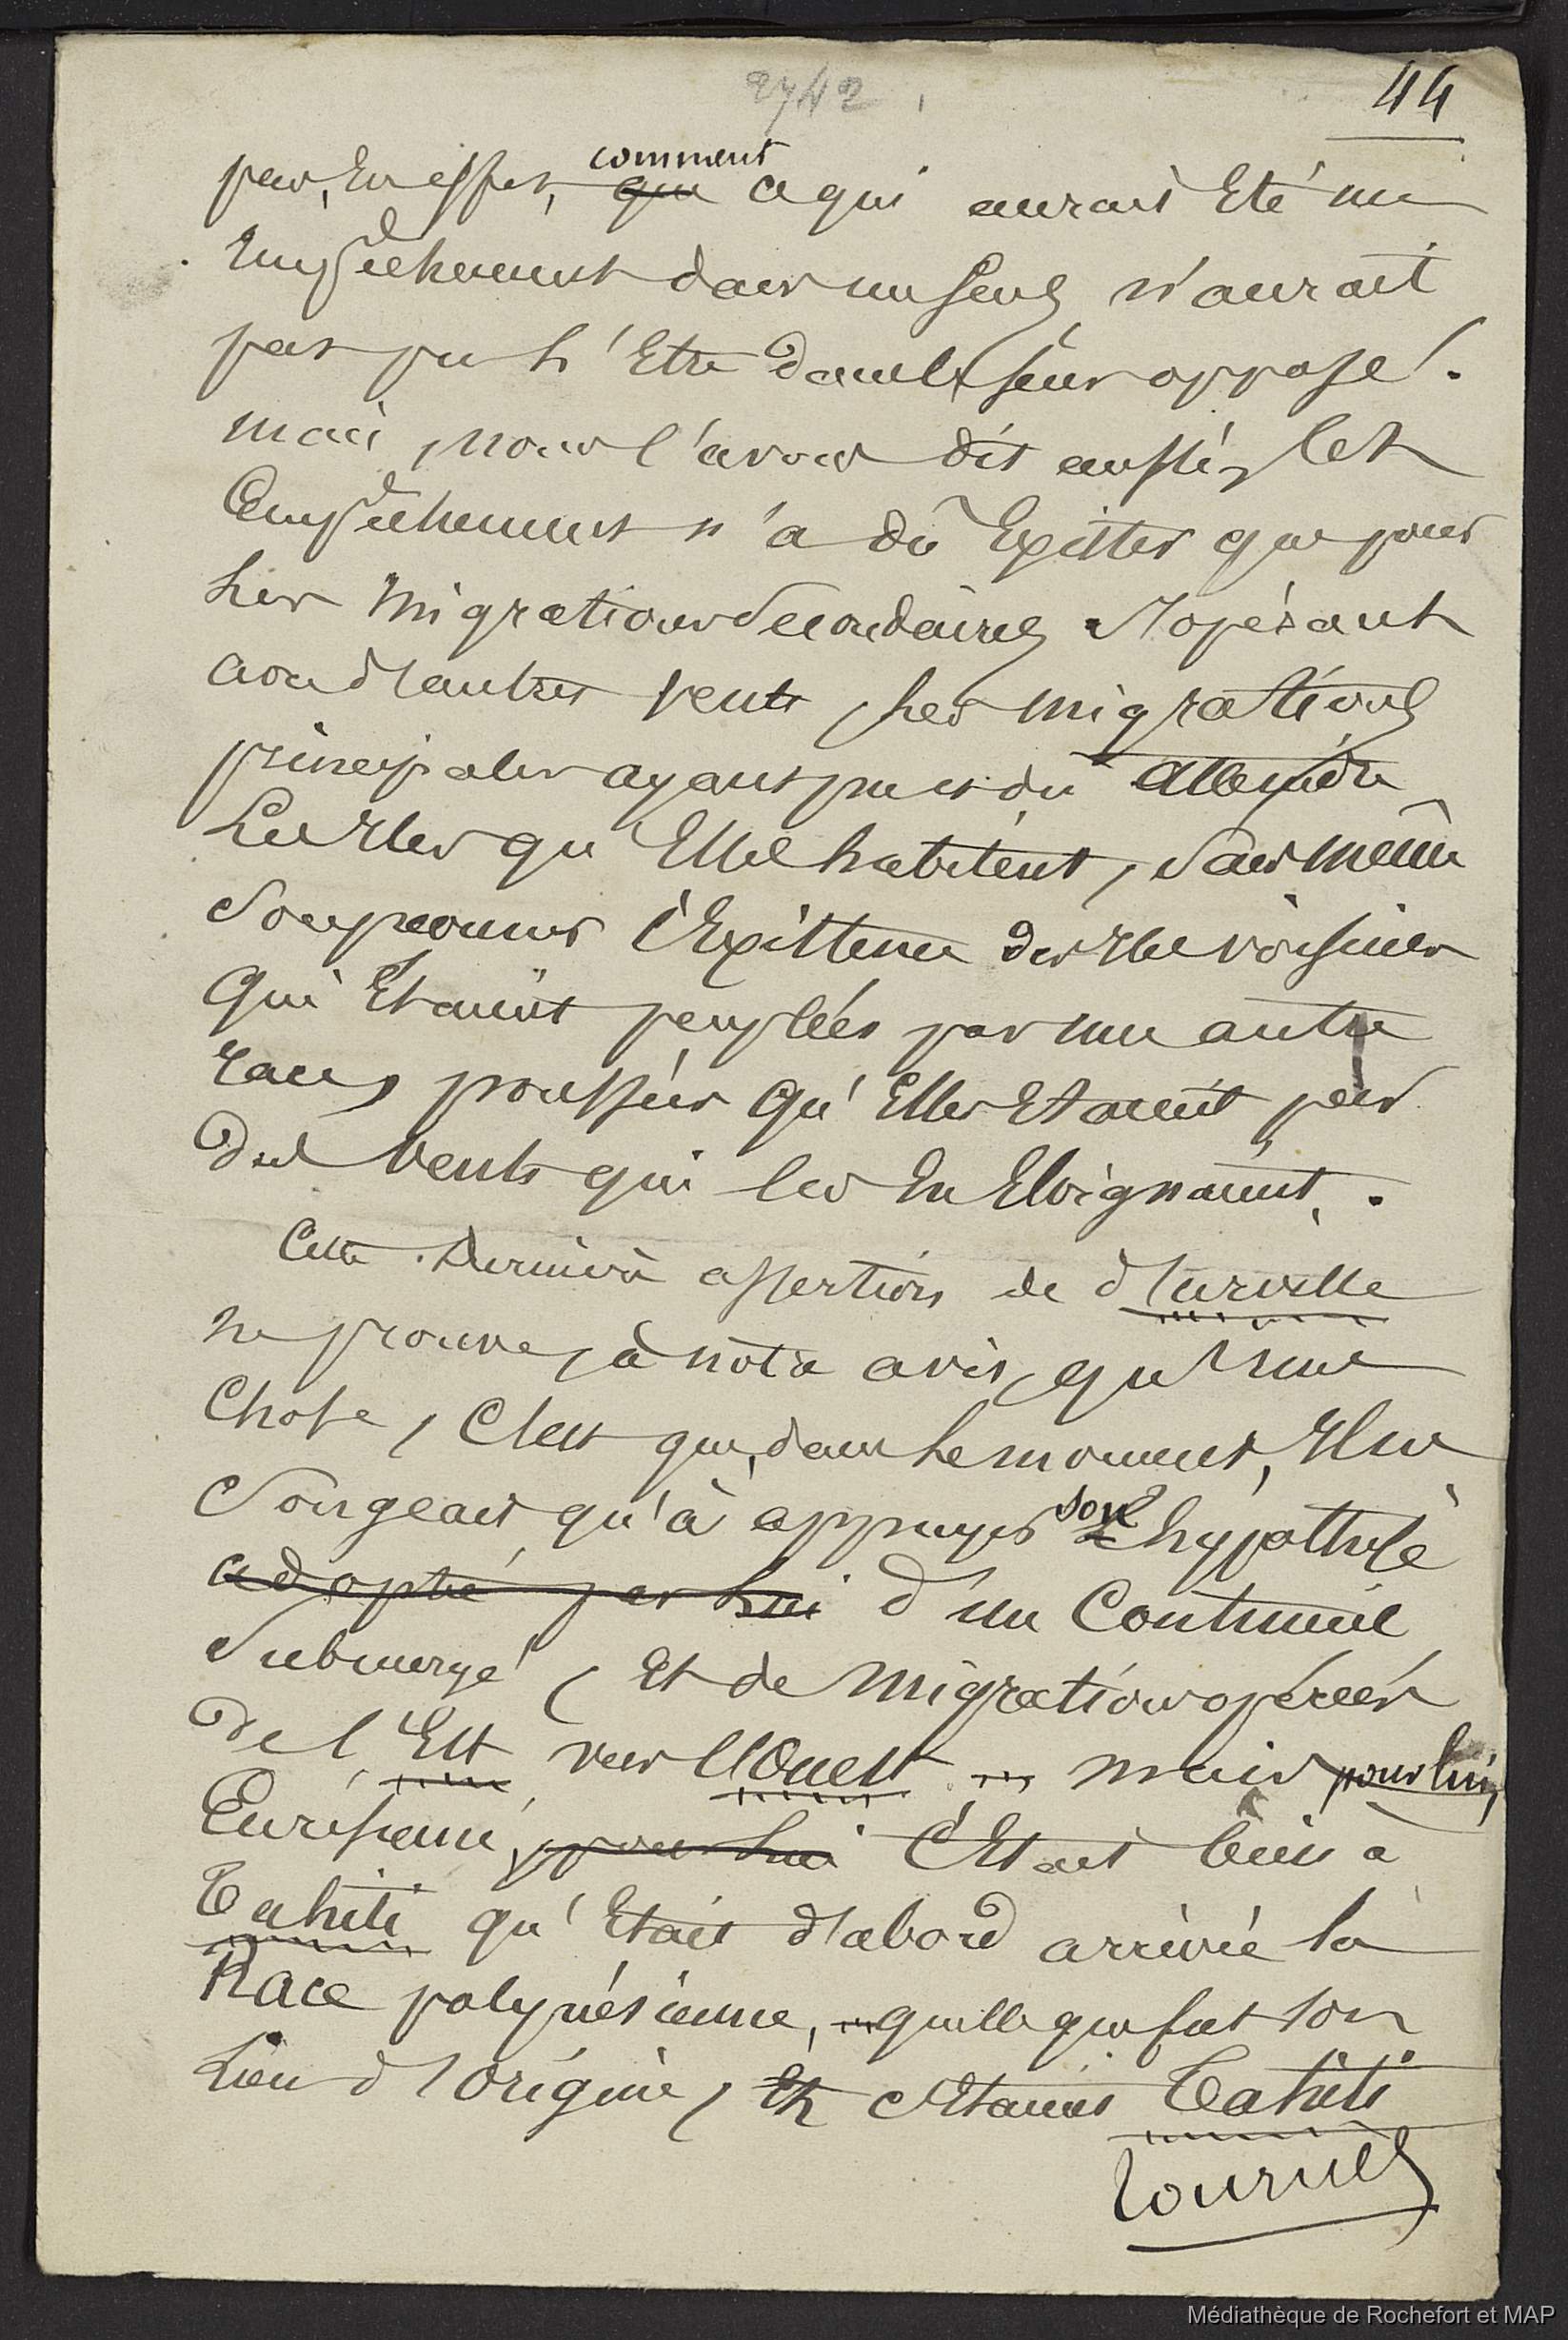 2742
44
pas, en effet, comment que ce qui aurait été un
empêchement dans un sens, n'aurait
pas pu l'être dans le sens opposé.
mais, nous l'avons dit aussi, cet
empêchement n'a dû exister que pour
les migrations secondaires s'opérant
avec d'autres vents, les migrations
principales ayant pu et dû atteindre
les îles qu'elles habitent, sans même
soupçonner l'existence des îles voisines
qui étaient peuplées par une autre
race, poussées qu'elles étaient par
des vents qui les en éloignaient.
Cette dernière assertion de d'urville
ne prouve, à notre avis, qu'une
chose, c'est que, dans le moment, il ne
songeait qu'à appuyer son l'hypothèse
adoptée par lui d'un Continent
submergé, et de migrations opérées
de l'Est vers l'Ouest mais pour lui,
Européen, pour lui c'était bien à
Tahiti qu'était d'abord arrivée la
Race polynésienne, quelle que fut son
lieu d'origine, et c'était Tahiti
Tournez
Médiathèque de Rochefort et MAP